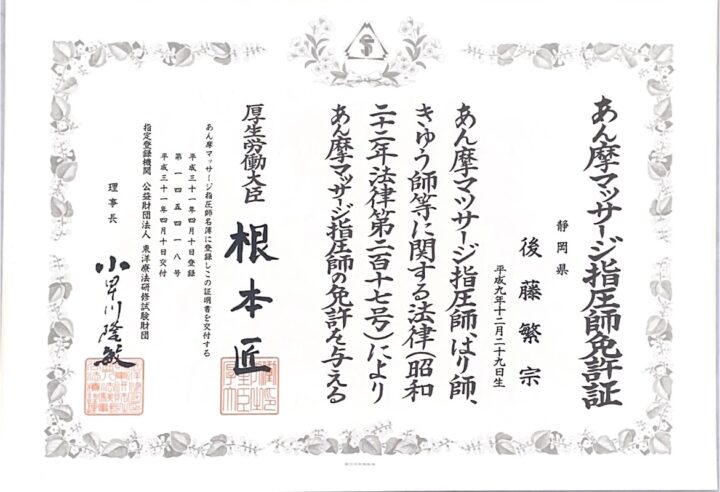 あん摩マッサージ指圧師免許証
静岡県
後藤繁宗
平成九年十二月二十九日生
あん摩マッサージ指圧師、はり師、
きゅう師等に関する法律(昭和
二十二年法律第二百十七号)により
あん摩マッサージ指圧師の免許を与える
厚生労働大臣 根本匠
あん摩マッサージ指圧師名簿に登録しこの証明書を交付する
平成三十一年四月十日登録
第一四五四一八号
平成三十一年四月十日交付
指定登録機関 公益財団法人 東洋療法研修試験財団
理事長 小早川隆敏